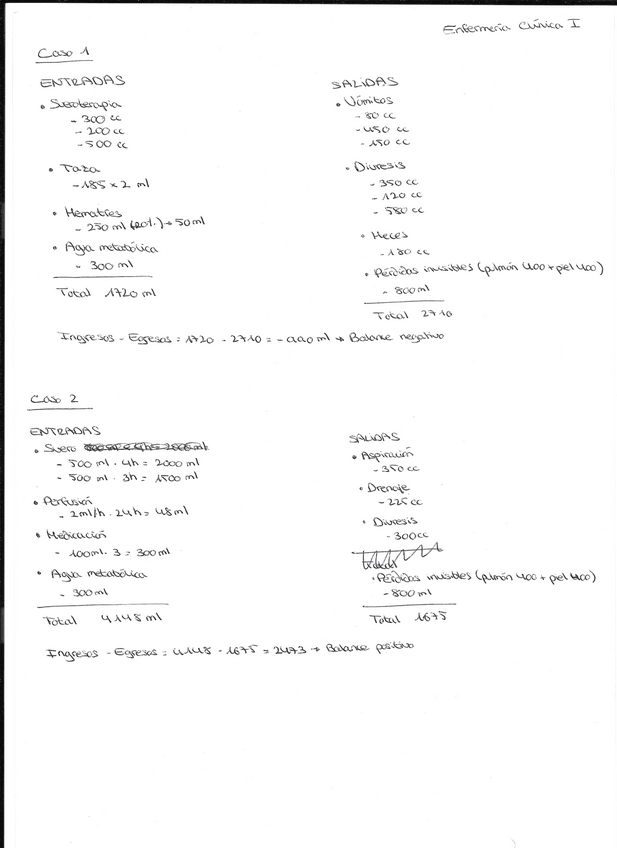 Enfermería Clínica I
Caso 1
ENTRADAS
• Sueroterapia
- 300 cc
- 200 cc
- 500 cc
• Taza
- 185 x 2 ml
• Hematíes
- 250 ml (20%) → 50 ml
• Agua metabólica
- 300 ml
Total 1720 ml
SALIDAS
• Vómitos
- 80 cc
- 450 cc
- 150 cc
• Diuresis
- 350 cc
- 120 cc
- 580 cc
• Heces
- 180 cc
• Pérdidas invisibles (pulmón 400 + piel 400)
- 800 ml
Total 2710
Ingresos - Egresos = 1720 - 2710 = - 990 ml → Balance negativo
Caso 2
ENTRADAS
• Suero
- 500 ml · 4h = 2000 ml
- 500 ml · 3h = 1500 ml
• Perfusión
- 2ml/h · 24h = 48 ml
• Medicación
- 100 ml · 3 = 300 ml
• Agua metabólica
- 300 ml
Total 4148 ml
SALIDAS
• Aspiración
- 350 cc
• Drenaje
- 225 cc
• Diuresis
- 300 cc
• Pérdidas invisibles (pulmón 400 + piel 400)
- 800 ml
Total 1675
Ingresos - Egresos = 4148 - 1675 = 2473 → Balance positivo